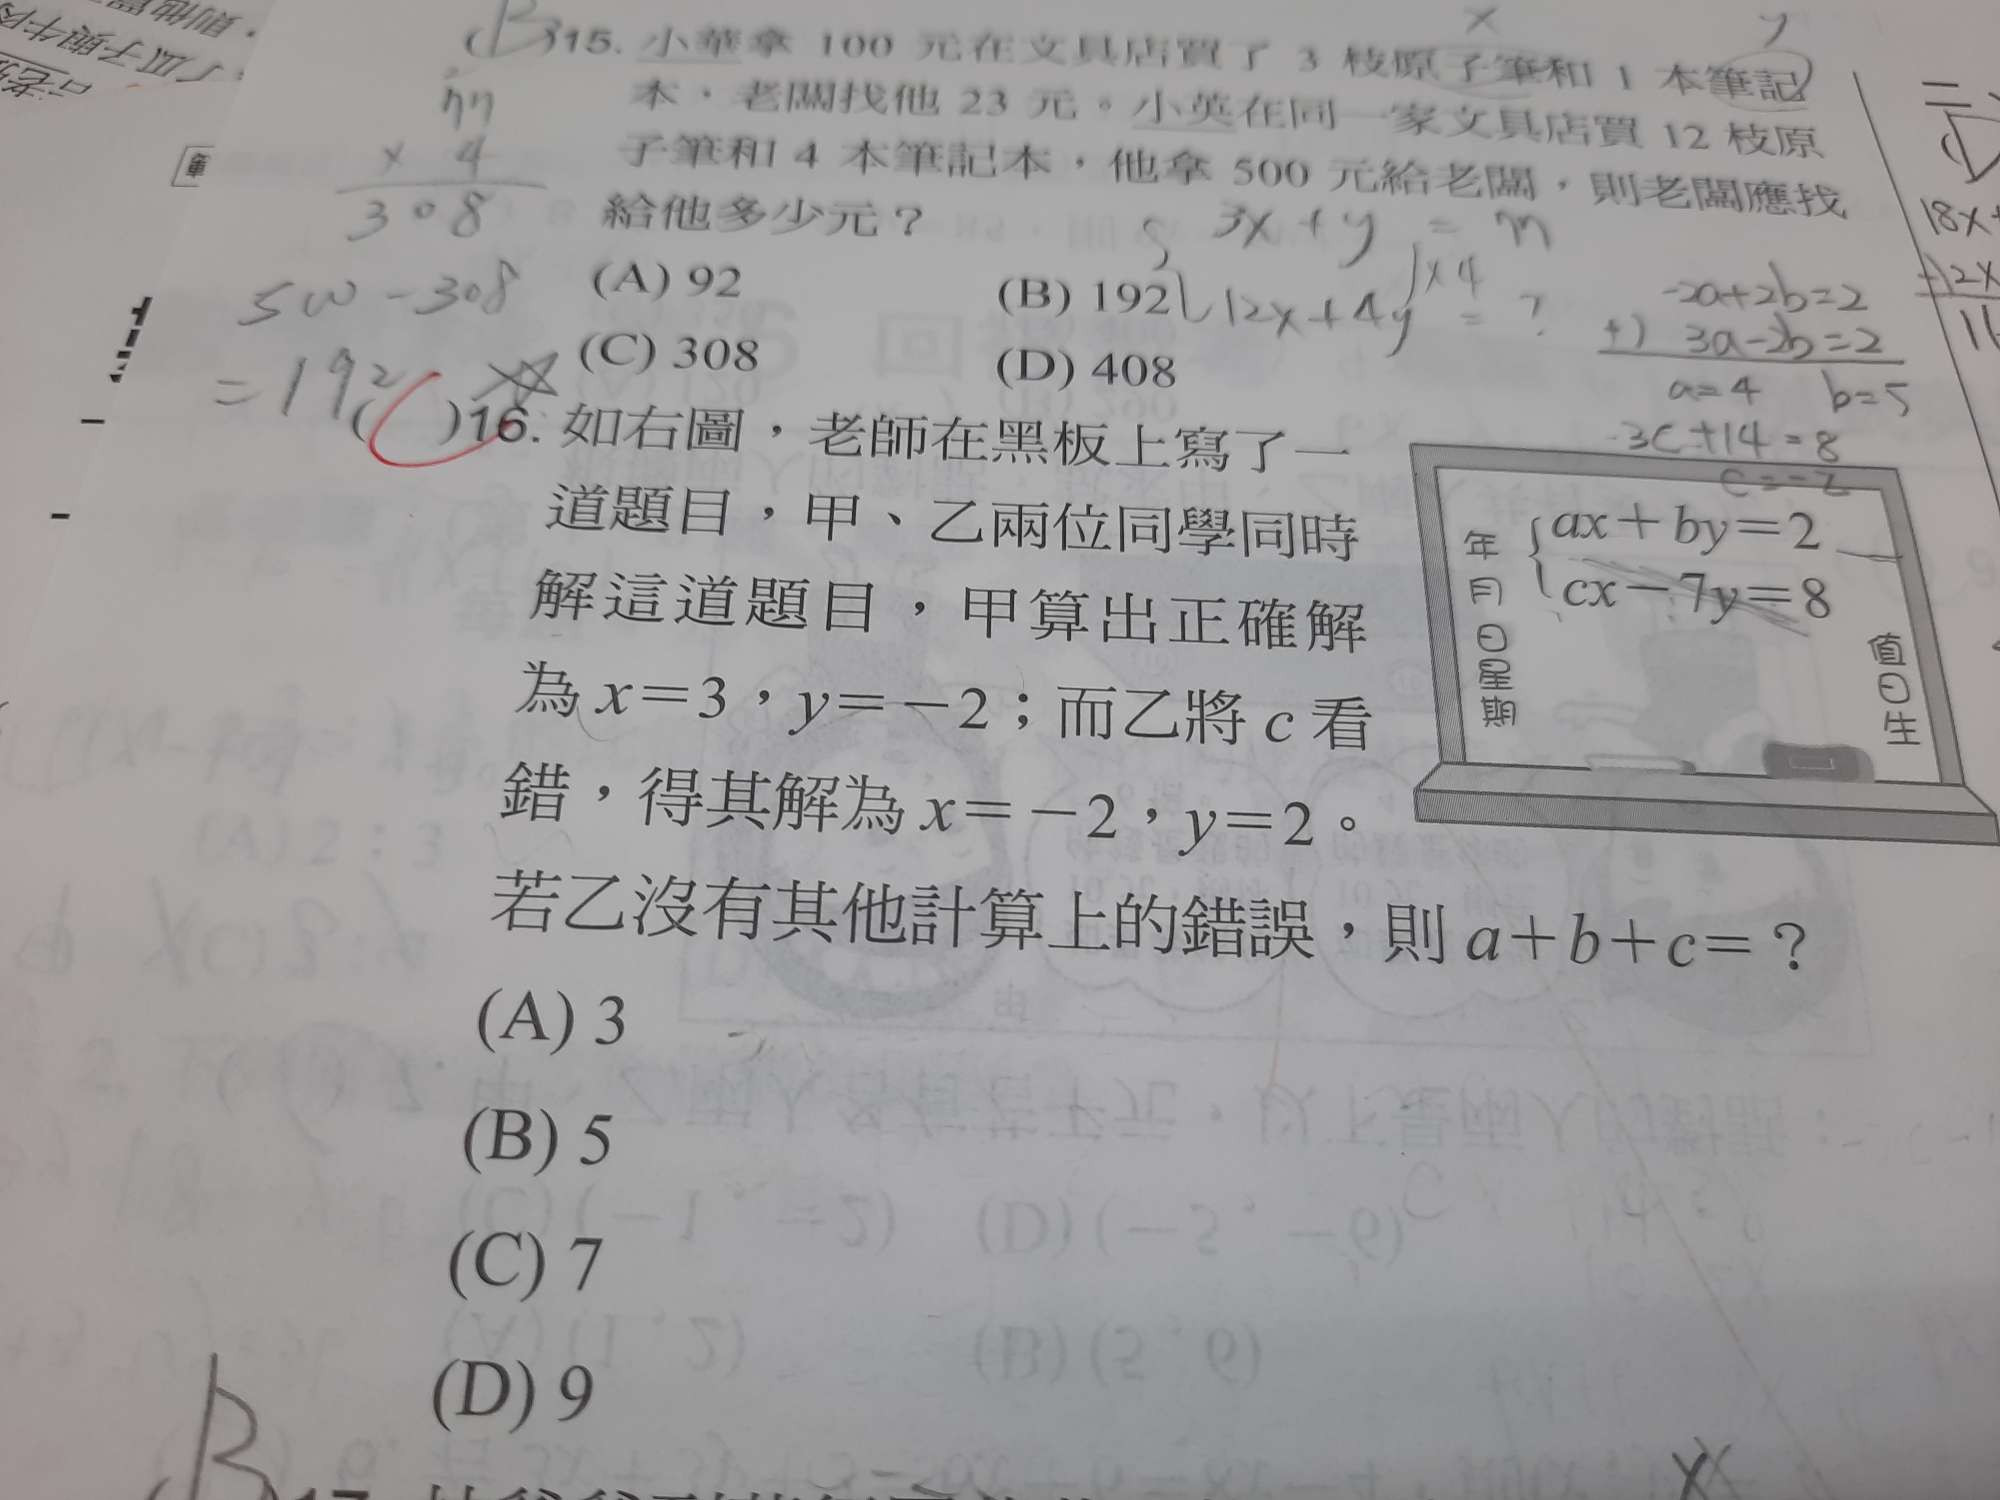 (B)15. 小華拿 100 元在文具店買了 3 枝原子筆和 1 本筆記
本，老闆找他 23 元。小英在同一家文具店買 12 枝原
子筆和 4 本筆記本，他拿 500 元給老闆，則老闆應找
給他多少元？
x
y
77
× 4
308
500-308
=192
3x+y=77
)×4
12x+4y=?
(A) 92
(B) 192
(C) 308
(D) 408
-2a+2b=2
+) 3a-2b=2
a=4 b=5
3c+14=8
c=-2
( )16. 如右圖，老師在黑板上寫了一
道題目，甲、乙兩位同學同時
解這道題目，甲算出正確解
為 x＝3，y＝－2；而乙將 c 看
錯，得其解為 x＝－2，y＝2。
若乙沒有其他計算上的錯誤，則 a＋b＋c＝？
年月日星期
ax＋by＝2
cx－7y＝8
值日生
(A) 3
(B) 5
(C) 7
(D) 9
B